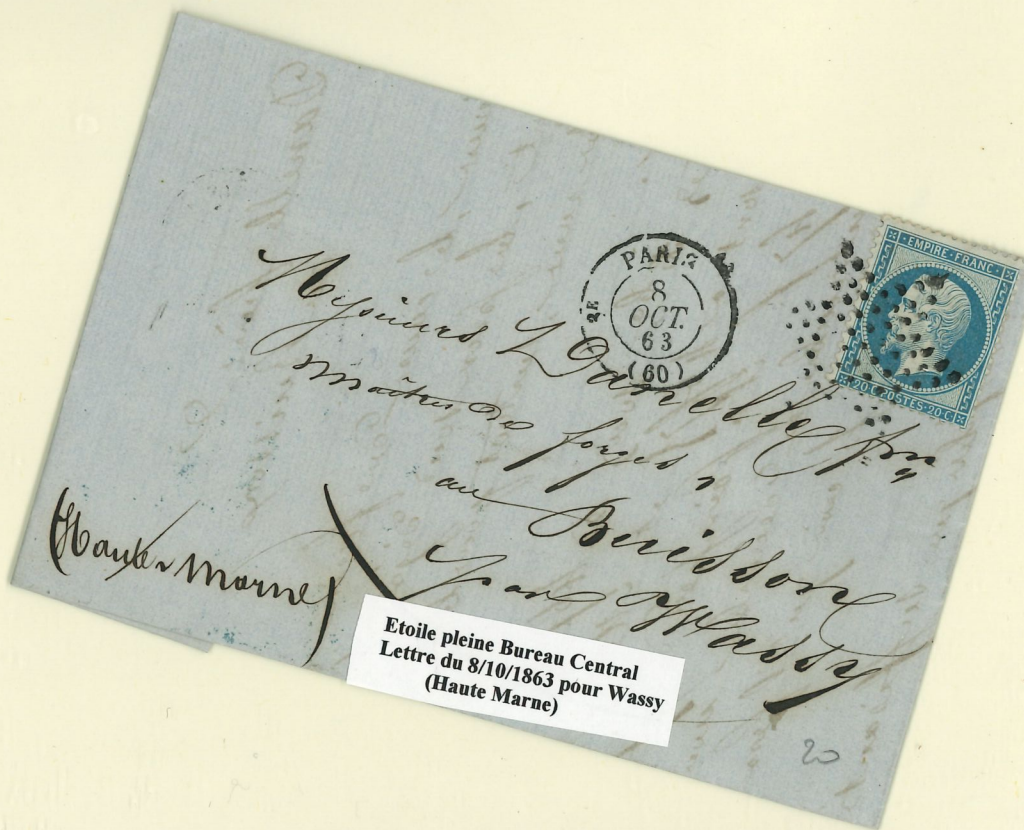 EMPIRE · FRANC ·
20 C POSTES · 20 C
PARIS
2E
8
OCT.
63
(60)
Messieurs L Danelle frs
Maîtres de forges
au Buisson
par Wassy
(Haute Marne)
Etoile pleine Bureau Central
Lettre du 8/10/1863 pour Wassy
(Haute Marne)
20